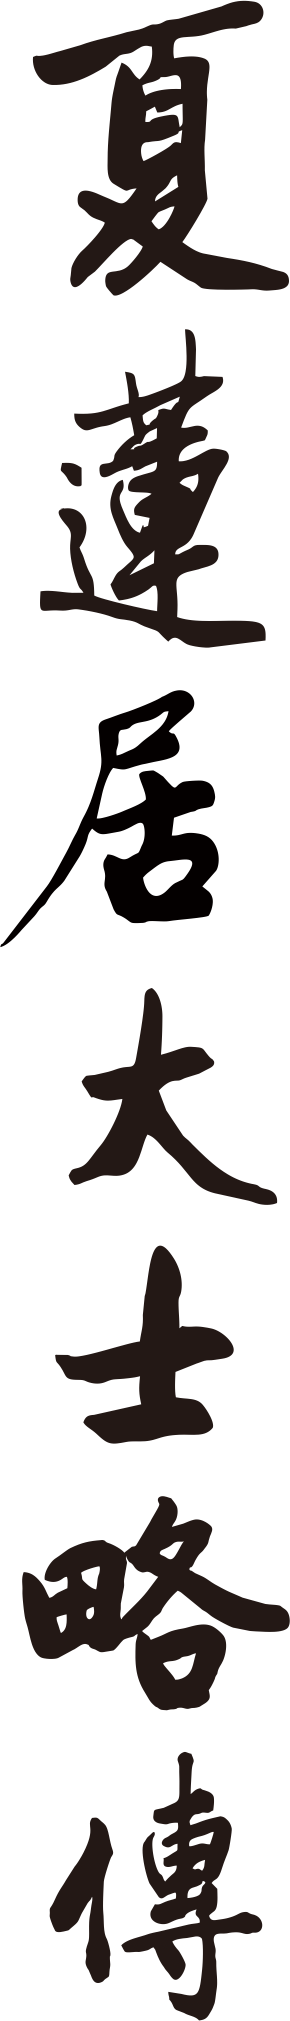 夏蓮居大士略傳